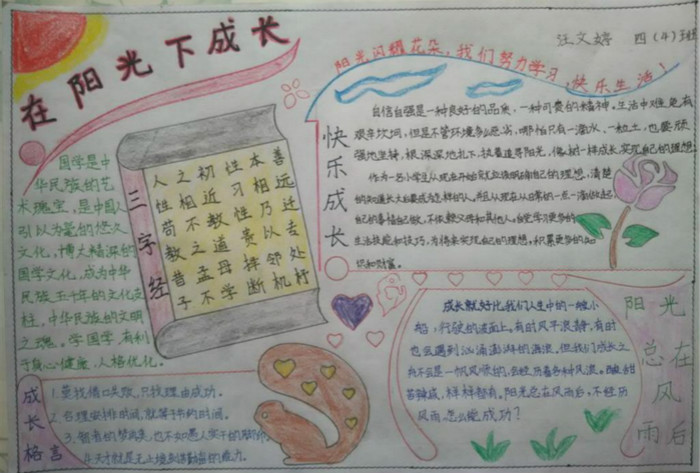 在阳光下成长
汪文婷 四(4)班
阳光闪耀花朵,我们努力学习,快乐生活!
国学是中
华民族的艺
术瑰宝,是中国人
引以为爱的悠久
文化,博大精深的
国学文化,成为中华
民族五千年的文化支
柱,中华民族的文明
之魂。学国学,有利
于身心健康,人格优化。
三字经
人之初 性本善
性相近 习相远
苟不教 性乃迁
教之道 贵以专
昔孟母 择邻处
子不学 断机杼
快乐成长
自信自强是一种良好的品质,一种可贵的精神。生活中难免有
艰辛坎坷,但是不管环境多么恶劣,哪怕只有一滴水,一粒土,也要顽
强地坚持,根深深地扎下,执着追寻阳光,像树一样成长,实现自己的理想。
作为一名小学生从现在开始就应该明确自己的理想,清楚
的知道长大要成为怎样的人,并且从现在从日常的一点一滴做起
自己的事情自己做,不依赖父母和其他人。自觉学习更多的
生活技能和技巧,为将来实现自己的理想,积累更多的知
识和财富。
成长格言
1.莫找借口失败,只找理由成功。
2.合理安排时间,就等于节约时间。
3.智者的梦再美,也不如愚人实干的脚印。
4.天才就是无止境刻苦勤奋的能力。
成长就好比我们人生中的一艘小
船,行驶的波面上,有时风平浪静,有时
也会遇到汹涌澎湃的海浪。但我们成长之
舟不会是一帆风顺的,会经历着各种风浪。酸甜
苦辣咸,样样都有。阳光总在风雨后,不经历
风雨,怎么能成功?
阳光总在风雨后